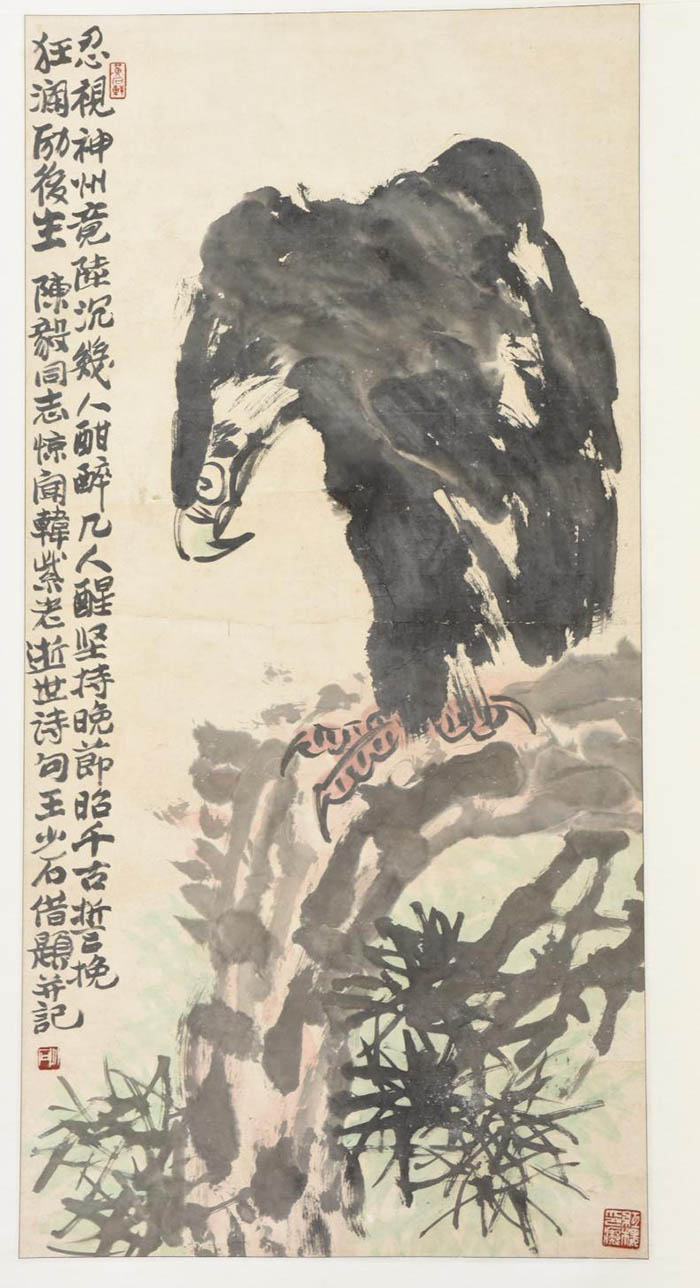 忍視神州竟陸沉幾人酣醉几人醒坚持晚節昭千古誓挽
狂澜励後生 陳毅同志惊闻韓紫老逝世诗句王少石借題并記